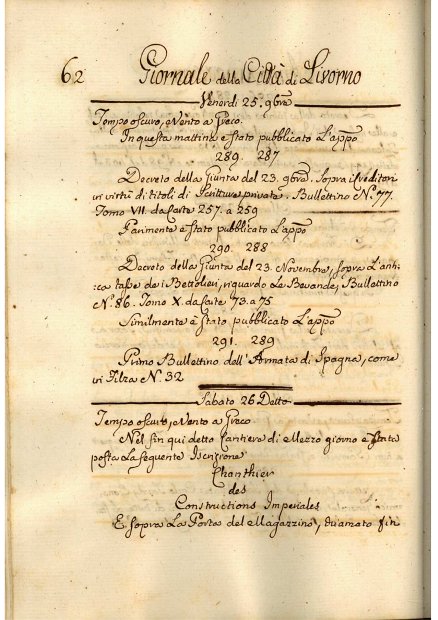 62 Giornale della Città di Livorno
Venerdì 25. 9bre
Tempo oscuro, e Vento a Greco.
In questa mattina è stato pubblicato L'appo
289. 287
Decreto della Giunta del 23. 9bre. Sopra i Creditori
in virtù di titoli di Scritture private. Bullettino N.º 77.
Tomo VII. da Carte 257. a 259
Parimente è stato pubblicato L'appo
290. 288
Decreto della Giunta del 23. Novembre, sopra L'anti:
:ca tassa dei Bettolieri, riguardo Le Bevande, Bullettino
N.º 86. Tomo X. da Carte 73. a 75
Similmente è stato pubblicato L'appo
291. 289
Primo Bullettino dell'Armata di Spagna, come
in Filza N. 32
Sabato 26 Detto
Tempo oscuro, e Vento a Greco
Nel fin qui detto Cantiere di Mezzo giorno è stata
posta La seguente Iscrizione
Chanthier
des
Constructions Imperiales
E sopra La Porta del Magazzino, chiamato fin